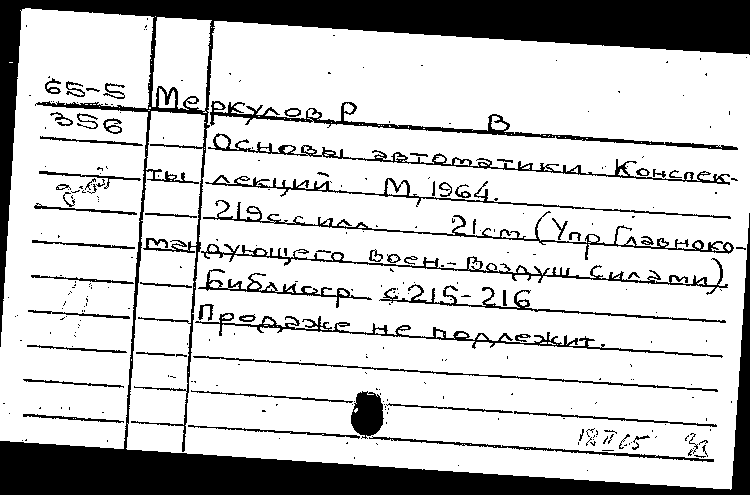 65-5 Меркулов, Р В
356
Основы автоматики. Конспек-
ты лекций. М, 1964.
219с. с илл. 21см. (Упр Главноко-
мандующего Воен.-Воздуш. силами)
Библиогр с.215-216
Продаже не подлежит.
18 II 65